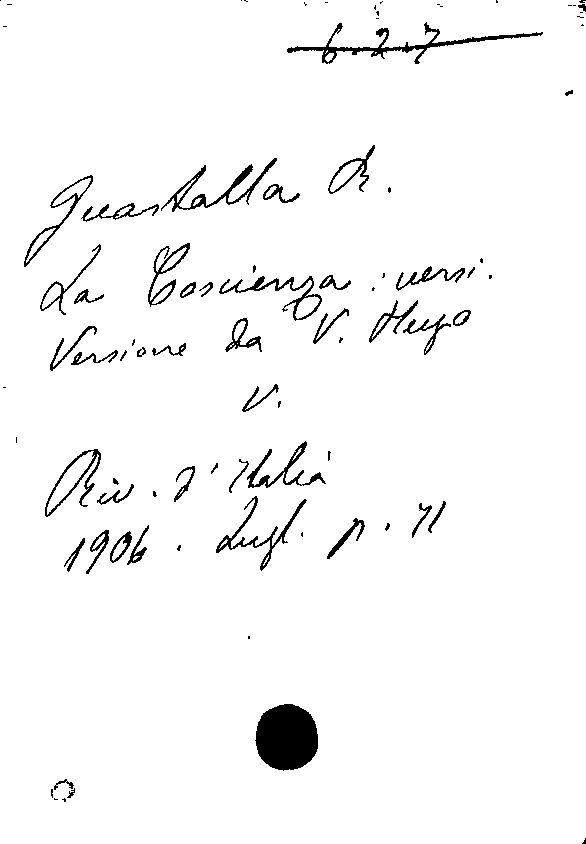 6.2.7
Guastalla R.
La Coscienza: versi.
Versione da V. Hugo
V.
Riv. d'Italia
1906. Lugl. p. 71